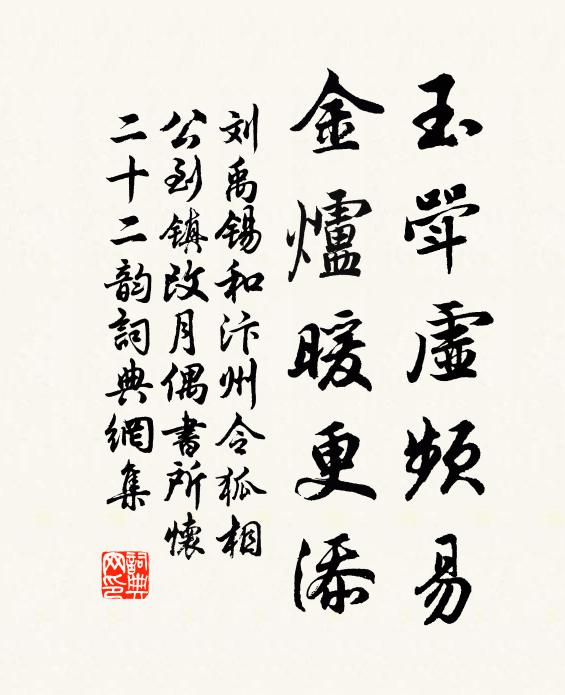 玉斝虛頻易
金爐暖更添
刘禹锡和汴州令狐相
公到鎮改月偶書所懷
二十二韵詞典網集
詞典网印